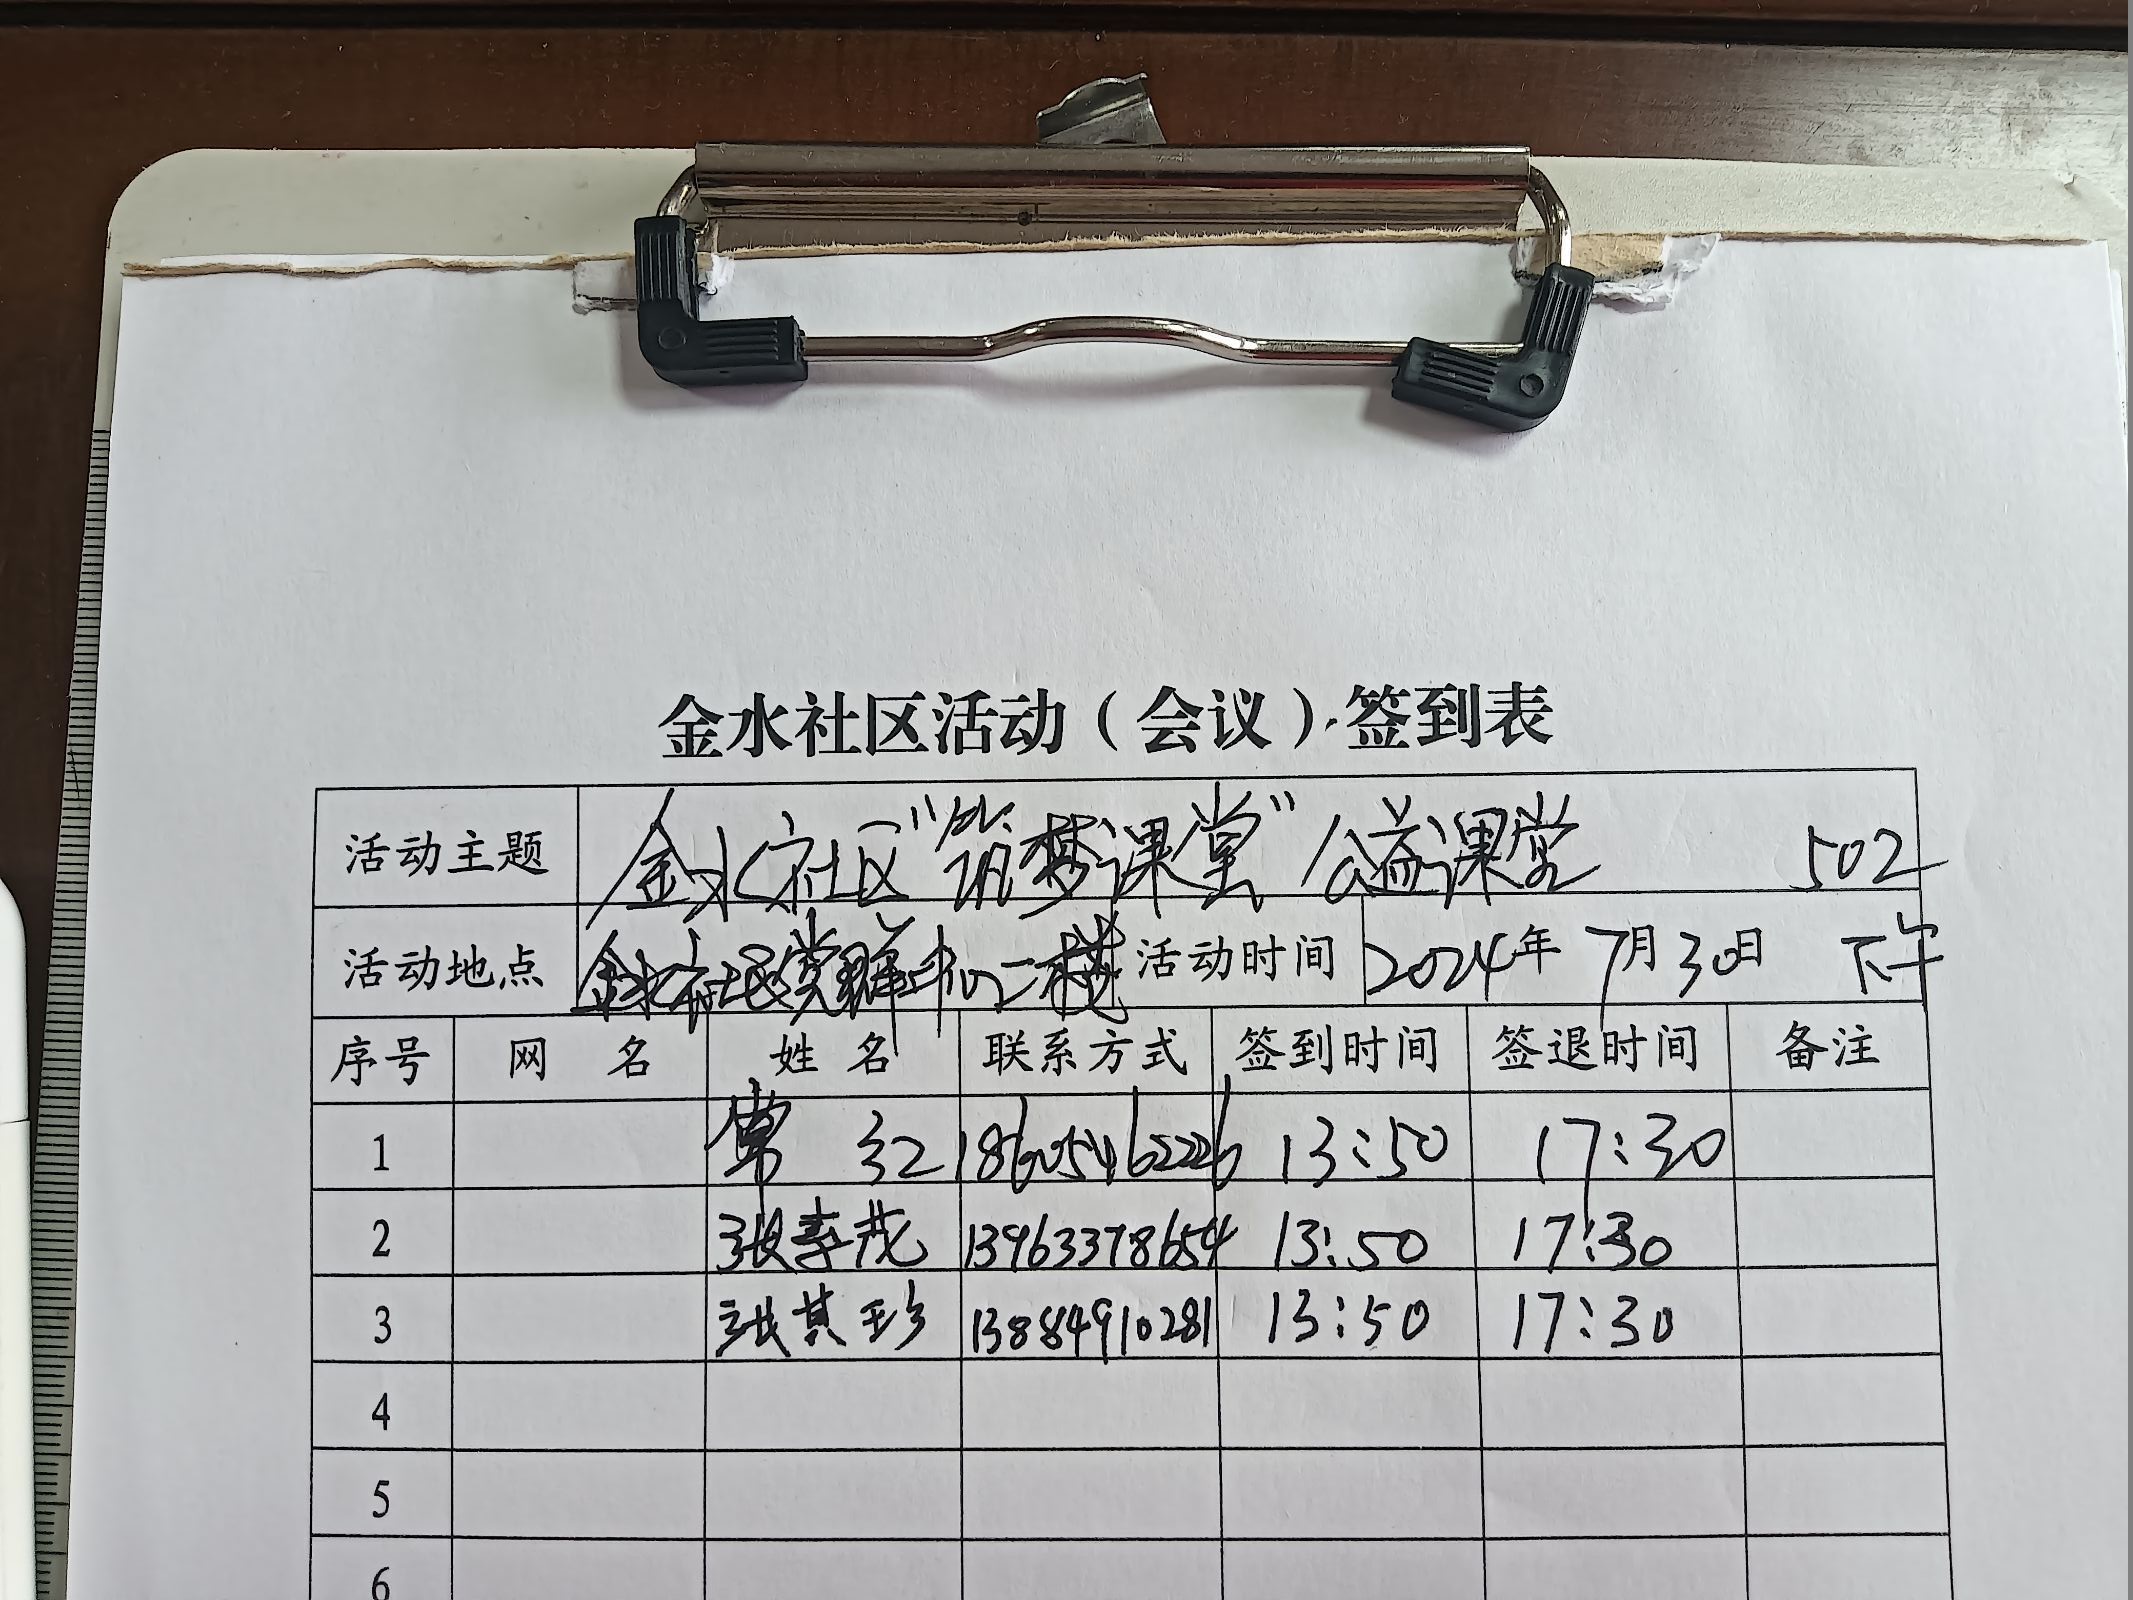 金水社区活动（会议）签到表
活动主题 金水社区“筑梦课堂”公益课堂 502
活动地点 金水社区党群中心二楼 活动时间 2024年7月30日 下午
序号 网 名 姓 名 联系方式 签到时间 签退时间 备注
1 常 红 18605462226 13:50 17:30
2 张 13963378654 13:50 17:30
3 张其珍 13884910281 13:50 17:30
4
5
6